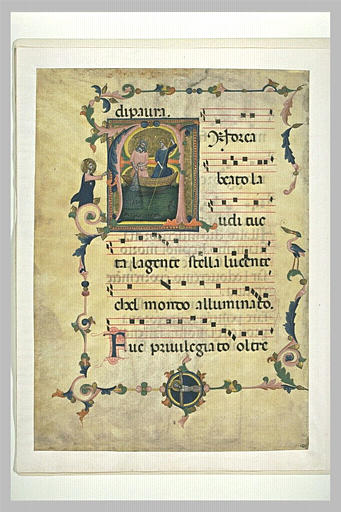 dipaura.
beato la
udi tuc
ta lagente stella lucente
chel mondo alluminato.
Fue privilegiato oltre